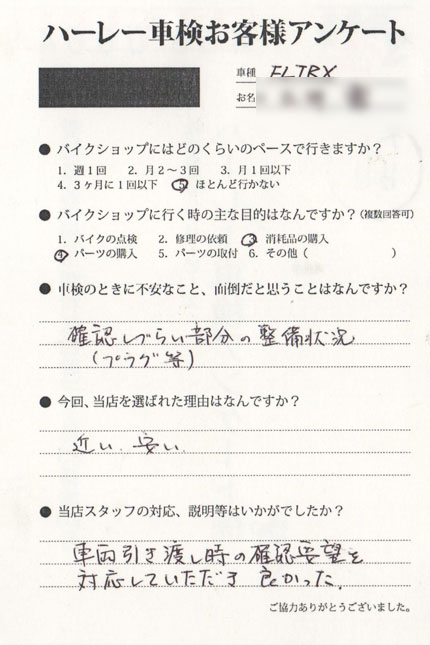 ハーレー車検お客様アンケート
車種 FLTRX
お名
● バイクショップにはどのくらいのペースで行きますか?
1. 週1回 2. 月2~3回 3. 月1回以下
4. 3ヶ月に1回以下 5. ほとんど行かない
● バイクショップに行く時の主な目的はなんですか?(複数回答可)
1. バイクの点検 2. 修理の依頼 3. 消耗品の購入
4. パーツの購入 5. パーツの取付 6. その他( )
● 車検のときに不安なこと、面倒だと思うことはなんですか?
確認しづらい部分の整備状況
(プラグ等)
● 今回、当店を選ばれた理由はなんですか?
近い、安い
● 当店スタッフの対応、説明等はいかがでしたか?
車両引き渡し時の確認要望を
対応していただき 良かった。
ご協力ありがとうございました。